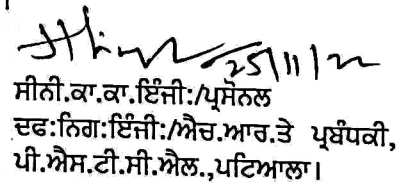 25/11/22
ਸੀਨੀ.ਕਾ.ਕਾ.ਇੰਜੀ:/ਪ੍ਰਸੋਨਲ
ਦਫ:ਨਿਗ:ਇੰਜੀ:/ਐਚ.ਆਰ.ਤੇ ਪ੍ਰਬੰਧਕੀ,
ਪੀ.ਐਸ.ਟੀ.ਸੀ.ਐਲ.,ਪਟਿਆਲਾ।